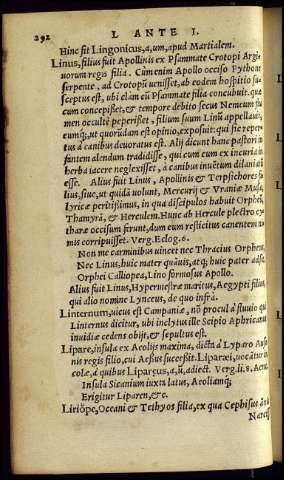 292 L ANTE I.
Hinc fit Lingonicus,a,um,apud Martialem.
Linus, filius fuit Apollinis ex Psammate Crotopi Argi
uorum regis filia. Cùm enim Apollo occiso Pythone
serpente, ad Crotopū uenisset, ab eodem hospitio su-
sceptus est, ubi clam eū Psammate filia concubuit. quæ
cum concepisset,& tempore debito secus Nemeum flu
men occulti peperisset, filium suum Linū appellauit,
eumq; ut quorūdam est opinio, exposuit: qui sie reper
tus à canibus deuoratus est. Alij dicunt hanc pastori in
fantem alendum tradidisse, qui cum eum ex incuria in
herba iacere neglexisset, à canibus inuētum dilaniatū
esse. Alius fuit Linus, Apollinis & Terpsichores fi-
lius, siue, ut quidā uolunt, Mercurij & Vraniæ Musæ,
lyricæ peritissimus, in qua discipulos habuit Orpheū,
Thamyrā, & Herculem. Hunc ab Hercule plectro cy
tharæ occisum ferunt, dum eum rusticitus canentem ni
mis corripuisset. Verg. Eclog. 6.
Non me carminibus uincet nec Thracius Orpheus,
Nec Linus, huic mater quāuis, atq; huic pater adsit,
Orphei Calliopea, Lino formosus Apollo.
Alius fuit Linus, Hypermestræ maritus, Aegypti filius,
qui alio nomine Lynceus, de quo infrà.
Linternum, uicus est Campaniæ, nō procul à fluuio qui
Linternus dicitur, ubi inclytus ille Scipio Aphricanus
inuidiæ cedens obijt, & sepultus est.
Lipare, insula ex Aeolijs maxima, dicta à Lyparo Auso
nis regis filio, cui Aeolus successit. Liparæi, uocātur in
colæ, à quibus Liparæus, a, ū, adiect. Verg. li. 8. Aene.
Insula Sicanium iuxta latus, Aeoliamq;
Erigitur Liparen, &c.
Liriöpe, Oceani & Tethyos filia, ex qua Cephisus
Narcis